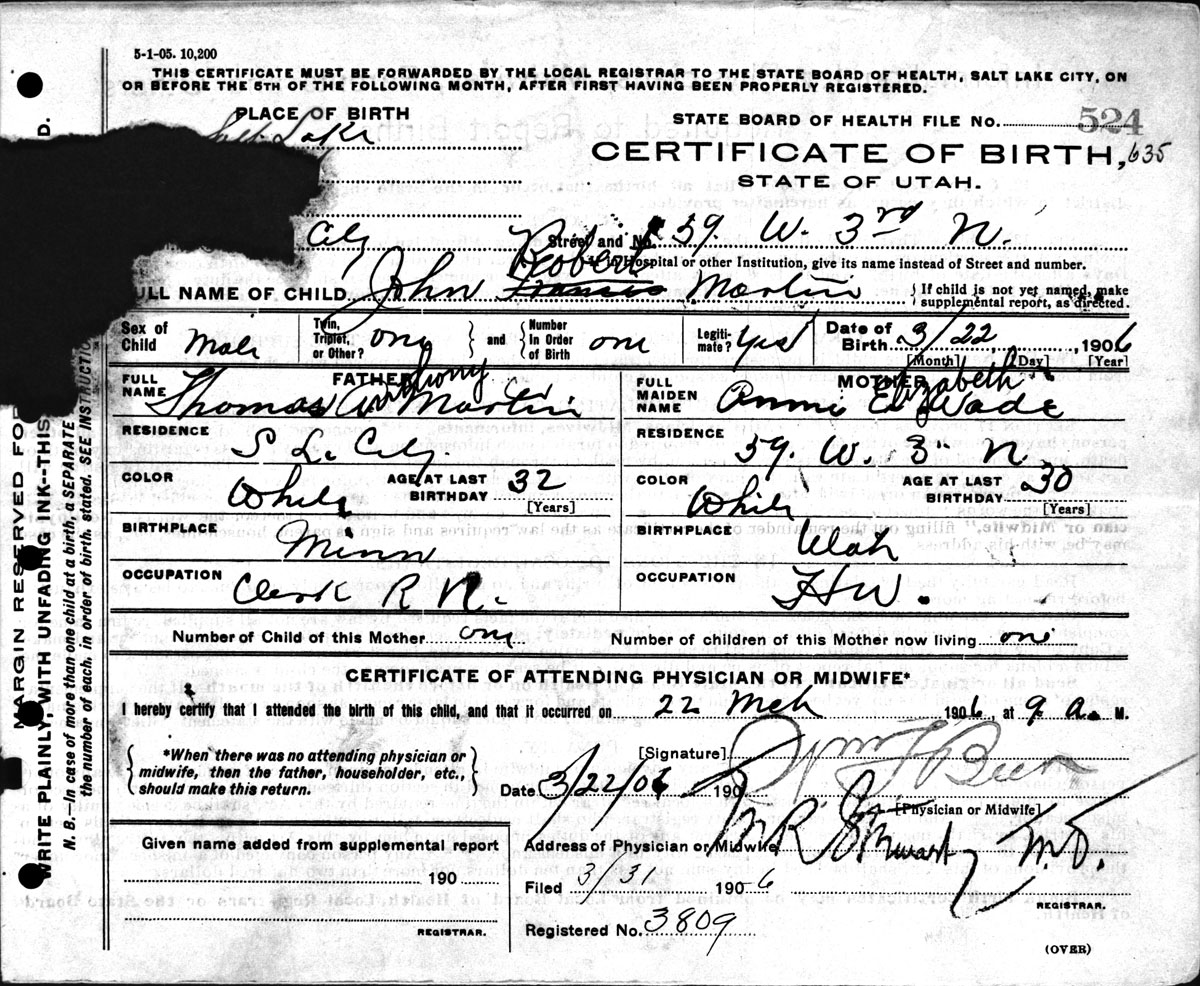 5-1-05. 10,200
THIS CERTIFICATE MUST BE FORWARDED BY THE LOCAL REGISTRAR TO THE STATE BOARD OF HEALTH, SALT LAKE CITY, ON
OR BEFORE THE 5TH OF THE FOLLOWING MONTH, AFTER FIRST HAVING BEEN PROPERLY REGISTERED.
PLACE OF BIRTH
Lake
STATE BOARD OF HEALTH FILE No. 524
CERTIFICATE OF BIRTH, 635
STATE OF UTAH.
City Street and No. 59. W. 3rd N.
Hospital or other Institution, give its name instead of Street and number.
Robert
FULL NAME OF CHILD John Francis Martin { If child is not yet named, make supplemental report, as directed.
Sex of Child Male Twin, Triplet, or Other? one } and { Number In Order of Birth one Legiti-mate? yes Date of Birth 3/22, 1906
[Month] [Day] [Year]
FATHER MOTHER
FULL NAME Thomas Anthony Martin FULL MAIDEN NAME Annie Elizabeth Wade
RESIDENCE S L City. RESIDENCE 59. W. 3. N
COLOR White AGE AT LAST BIRTHDAY 32 [Years] COLOR White AGE AT LAST BIRTHDAY 30 [Years]
BIRTHPLACE Minn BIRTHPLACE Utah
OCCUPATION Clerk R R. OCCUPATION H W.
Number of Child of this Mother one Number of children of this Mother now living one
CERTIFICATE OF ATTENDING PHYSICIAN OR MIDWIFE*
I hereby certify that I attended the birth of this child, and that it occurred on 22 Mch 1906, at 9 a. M.
{ *When there was no attending physician or midwife, then the father, householder, etc., should make this return. }
[Signature]
Date 3/22/06 190
[Physician or Midwife]
Given name added from supplemental report
190
REGISTRAR.
Address of Physician or Midwife
M.D.
Filed 3/31 1906
REGISTRAR.
Registered No. 3809
(OVER)
MARGIN RESERVED FO
WRITE PLAINLY, WITH UNFADING INK--THIS
D.
N. B.--In case of more than one child at a birth, a SEPARATE
the number of each, in order of birth, stated. SEE INSTRUCTIO